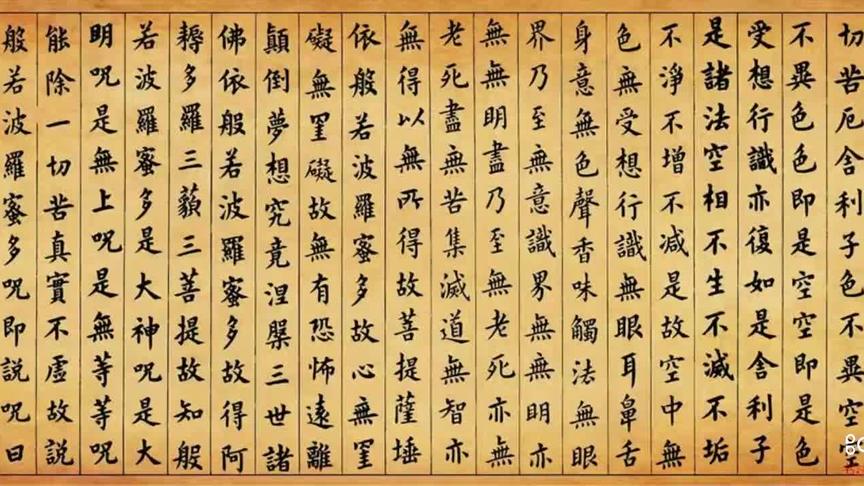 切苦厄舍利子色不異空空
不異色色即是空空即是色
受想行識亦復如是舍利子
是諸法空相不生不滅不垢
不淨不增不减是故空中無
色無受想行識無眼耳鼻舌
身意無色聲香味觸法無眼
界乃至無意識界無無明亦
無無明盡乃至無老死亦無
老死盡無苦集滅道無智亦
無得以無所得故菩提薩埵
依般若波羅蜜多故心無罣
礙無罣礙故無有恐怖遠離
顛倒夢想究竟涅槃三世諸
佛依般若波羅蜜多故得阿
耨多羅三藐三菩提故知般
若波羅蜜多是大神呪是大
明呪是無上呪是無等等呪
能除一切苦真實不虛故說
般若波羅蜜多呪即說呪曰